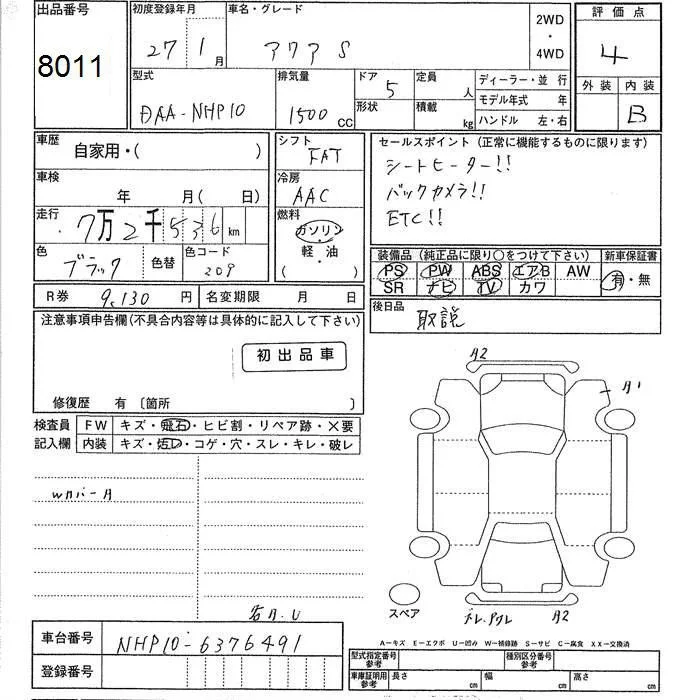 出品番号
8011
初度登録年月
27 1 月
車名・グレード
アクア S
2WD
・
4WD
評価点
4
外装 内装
B
型式
DAA-NHP10
排気量
1500 CC
ドア 5
形状
定員 人
積載 kg
ディーラー・並行
モデル年式 年
ハンドル 左・右
車歴
自家用・( )
シフト
FAT
セールスポイント (正常に機能するものに限ります)
シートヒーター!!
バックカメラ!!
ETC!!
車検
年 月( 日)
冷房
AAC
走行
7万2千536 km
燃料
ガソリン
・
軽・油
( )
色
ブラック
色替
色コード
209
装備品 (純正品に限り○をつけて下さい)
PS PW ABS エアB AW
SR ナビ TV カワ
新車保証書
有・無
R券 9,130 円
名変期限 月 日
後日品
取説
注意事項申告欄(不具合内容等は具体的に記入して下さい)
初出品車
修復歴 有 〔箇所 〕
検査員
記入欄
FW キズ・飛石・ヒビ割・リペア跡・×要
内装 キズ・汚レ・コゲ・穴・スレ・キレ・破レ
A2
A1
スペア
A2
A-キズ E-エクボ U-凹み W-補修跡 S-サビ C-腐食 XX-交換済
車台番号
NHP10-6376491
登録番号
型式指定番号
参考
種別区分番号
参考
車庫証明用
参考
長さ cm
幅 cm
高さ cm